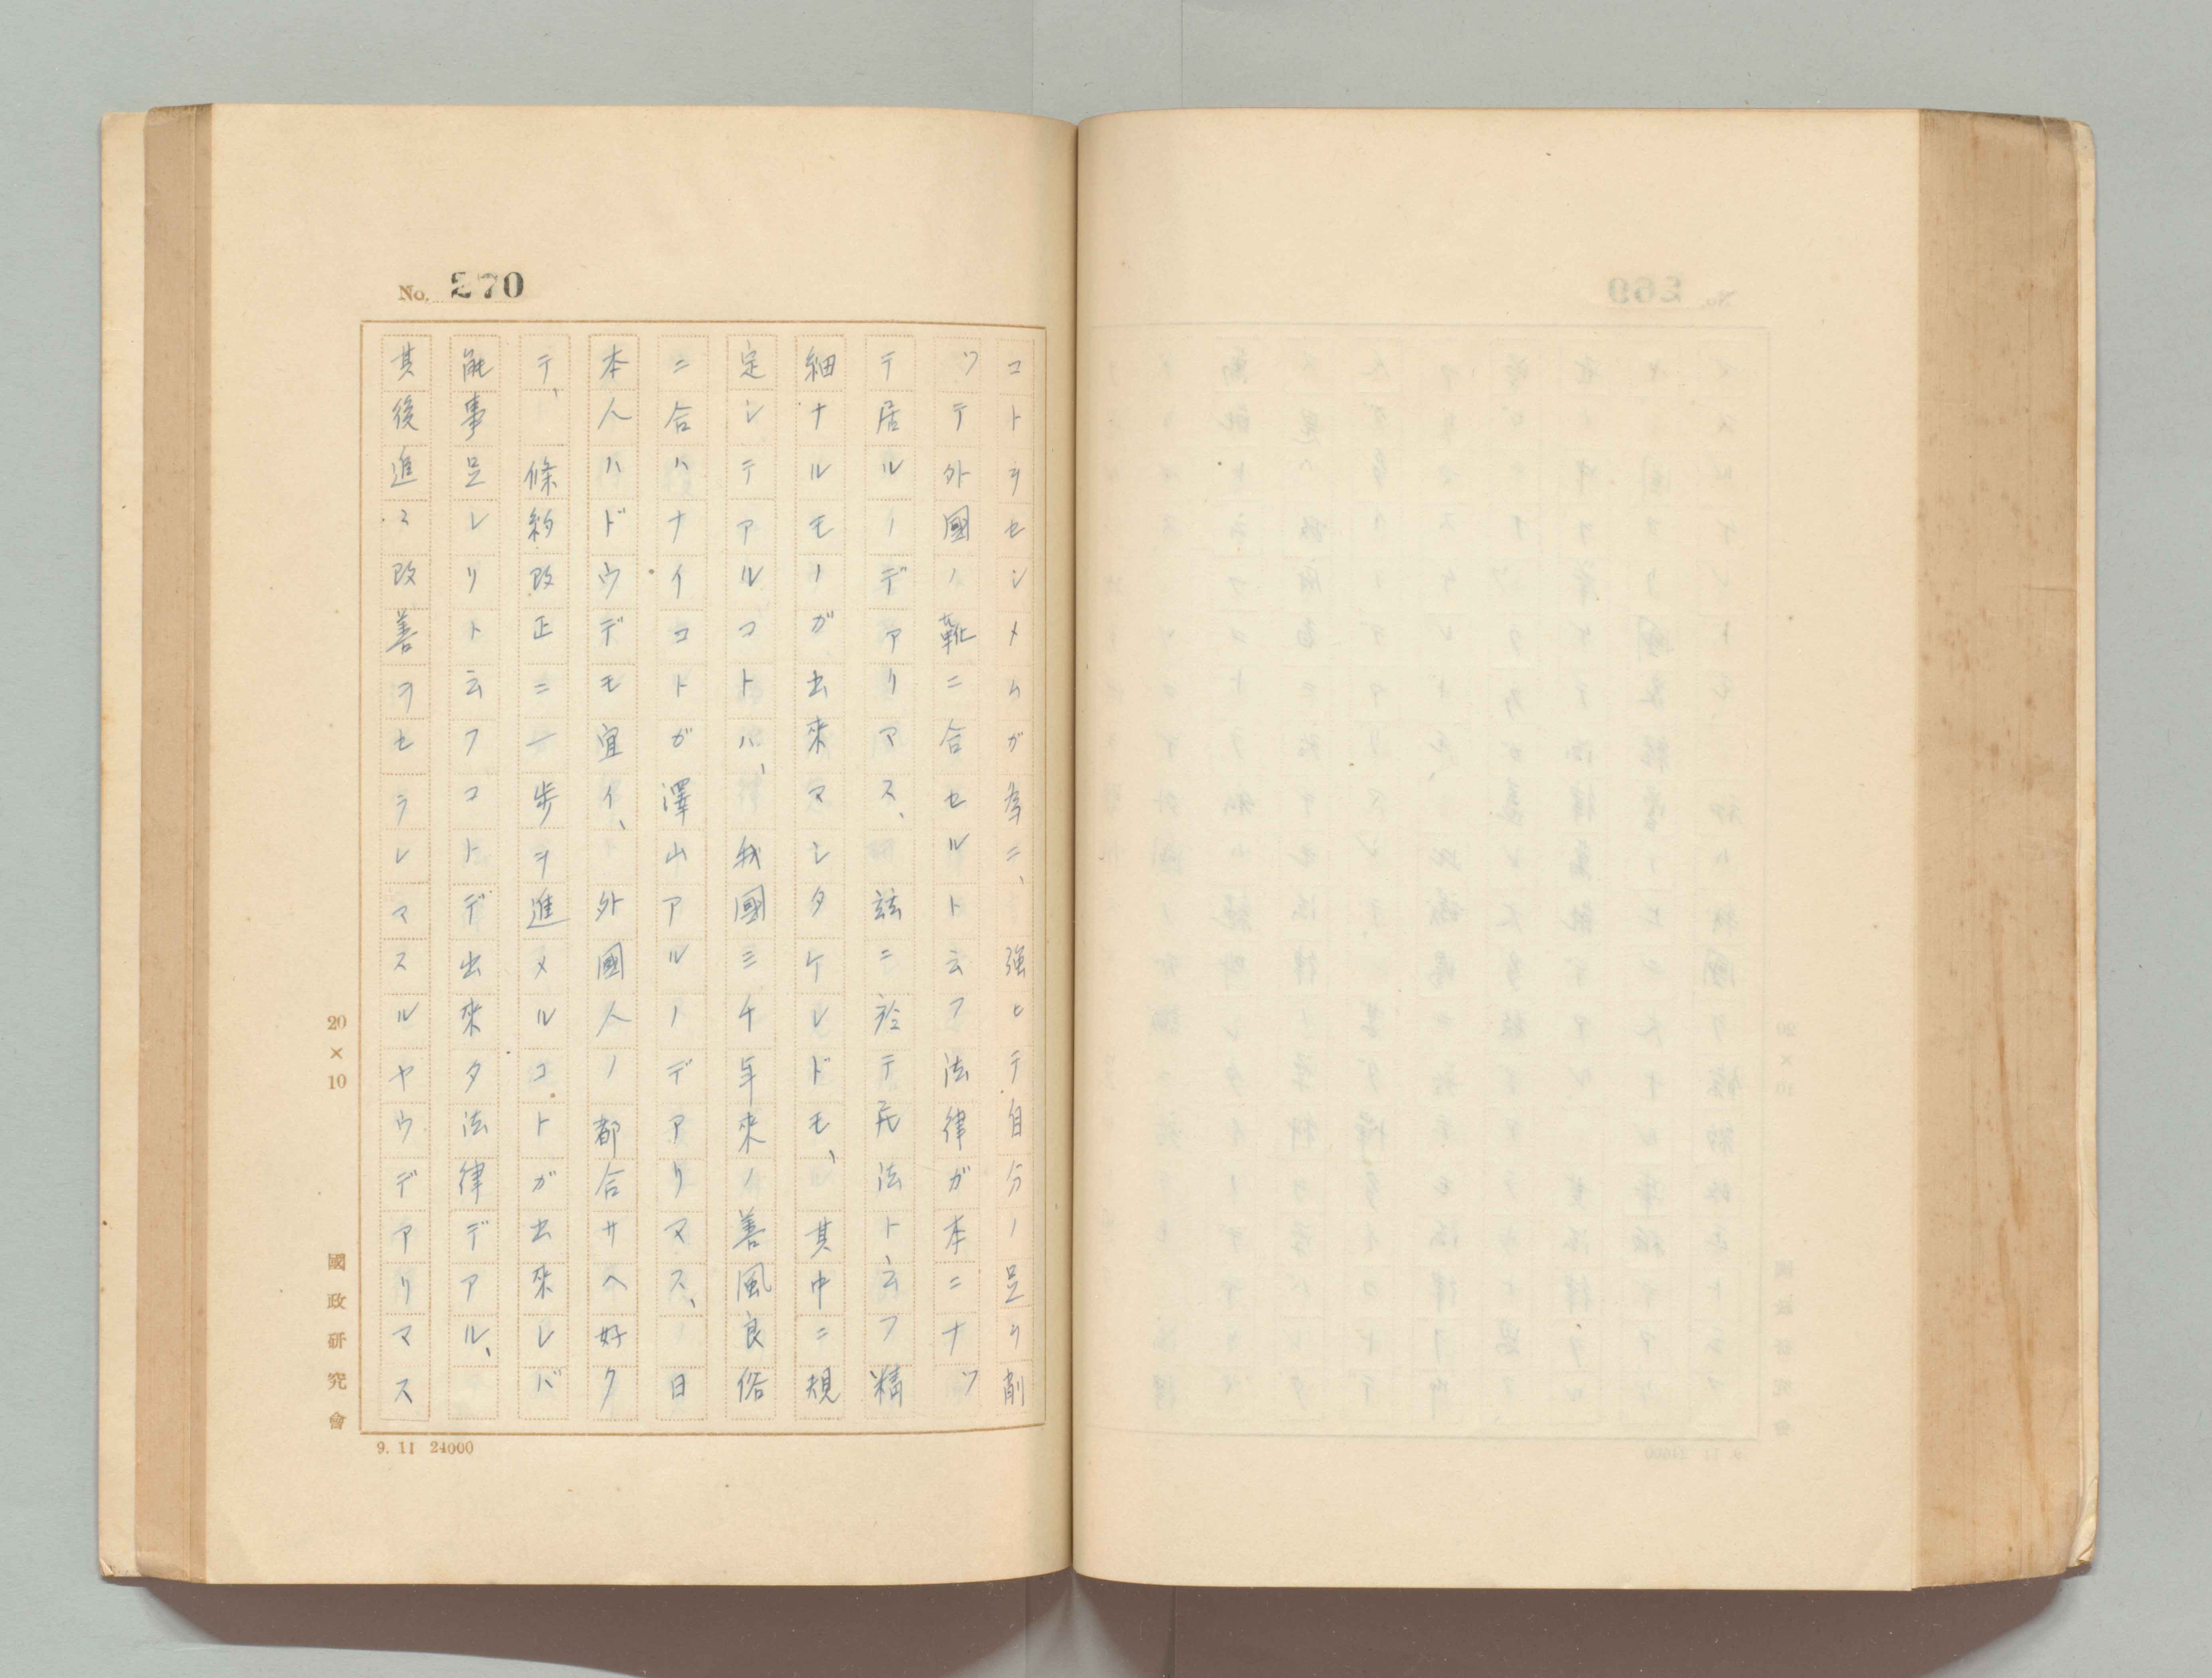 No. 270
コトヲセシメムガ為ニ、強ヒテ自分ノ足ヲ削
ツテ外國ノ靴ニ合セルト云フ法律ガ本ニナツ
テ居ルノデアリマス、茲ニ於テ民法ト云フ精
細ナルモノガ出來マシタケレドモ、其中ニ規
定シテアルコトハ、我國三千年來ノ善風良俗
ニ合ハナイコトガ澤山アルノデアリマス、日
本人ハドウデモ宜イ、外國人ノ都合サヘ好ク
テ、條約改正ニ一歩ヲ進メルコトガ出來レバ
能事足レリト云フコトデ出來タ法律デアル、
其後進ミ改善ヲセラレマスルヤウデアリマス
20×10
國政研究會
9. 11 24000